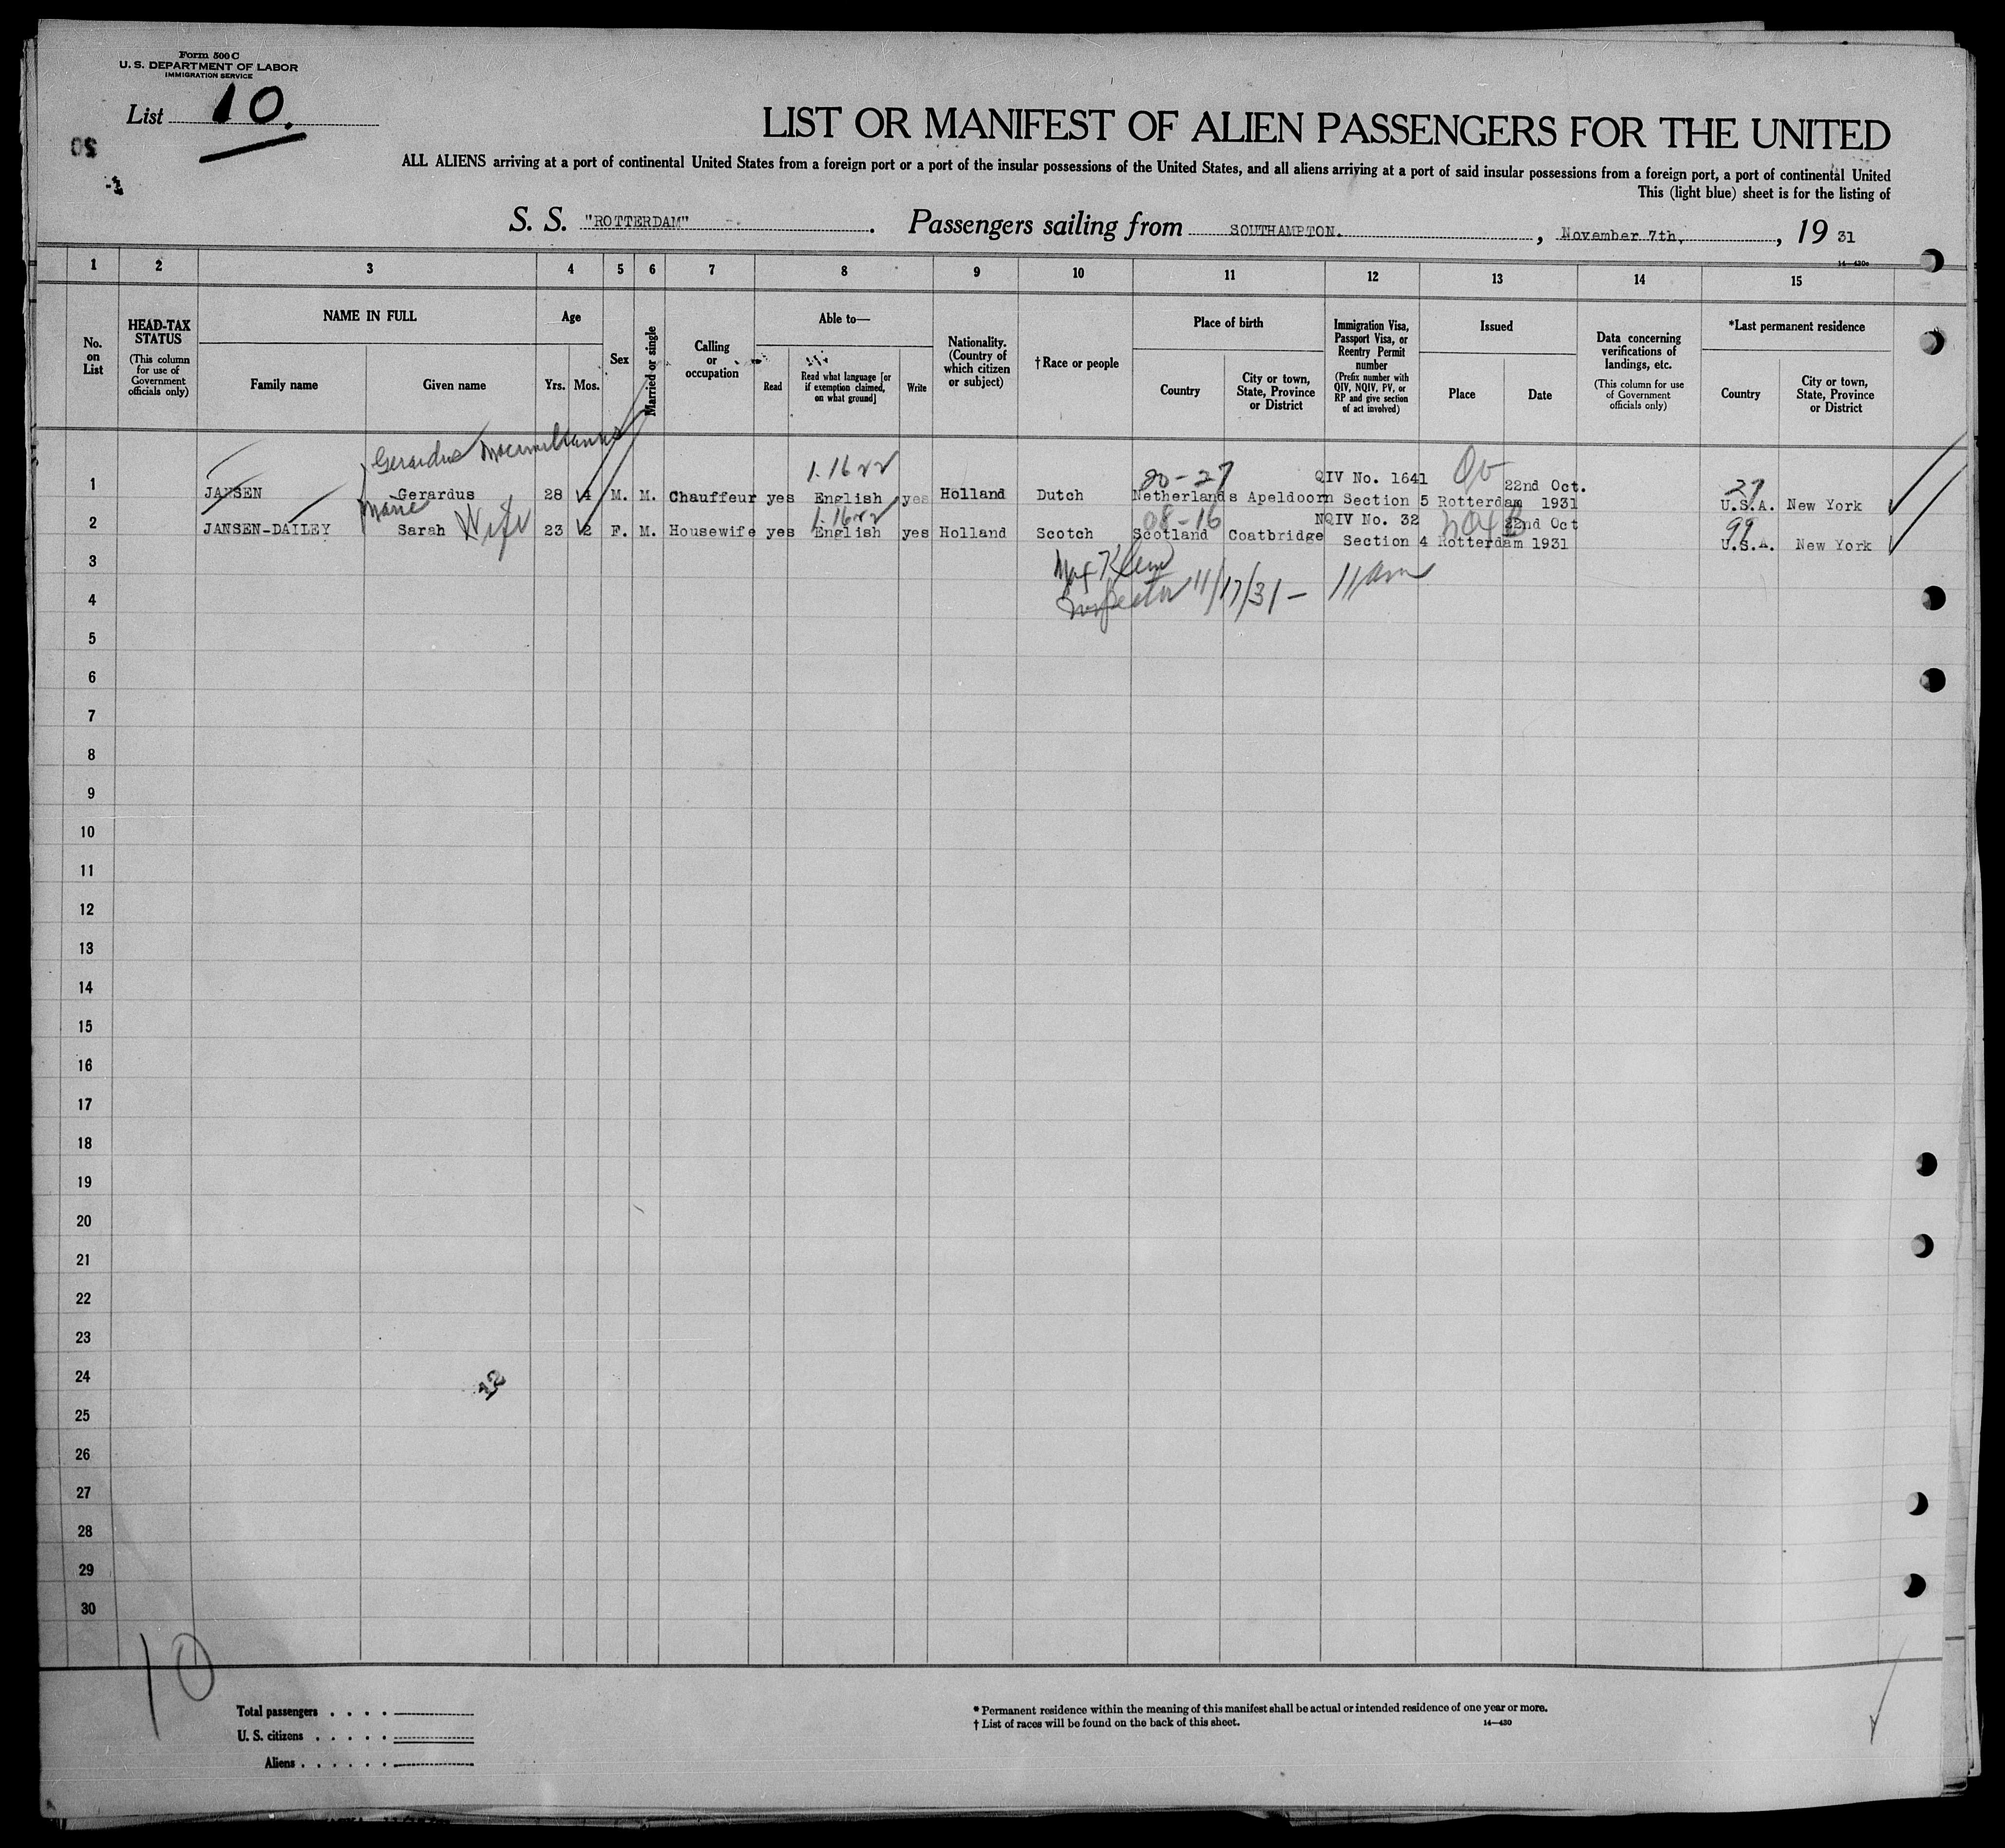 Form 500 C
U. S. DEPARTMENT OF LABOR
IMMIGRATION SERVICE
List 10.
LIST OR MANIFEST OF ALIEN PASSENGERS FOR THE UNITED
ALL ALIENS arriving at a port of continental United States from a foreign port or a port of the insular possessions of the United States, and all aliens arriving at a port of said insular possessions from a foreign port, a port of continental United
This (light blue) sheet is for the listing of
S. S. "ROTTERDAM" . Passengers sailing from SOUTHAMPTON. , November 7th, , 19 31
14—430c
1 2 3 4 5 6 7 8 9 10 11 12 13 14 15
No. on List
HEAD-TAX STATUS
(This column for use of Government officials only)
NAME IN FULL
Family name Given name
Age
Yrs. Mos.
Sex
Married or single
Calling or occupation
Able to—
Read
Read what language [or if exemption claimed, on what ground]
Write
Nationality. (Country of which citizen or subject)
†Race or people
Place of birth
Country
City or town, State, Province or District
Immigration Visa, Passport Visa, or Reentry Permit number
(Prefix number with QIV, NQIV, PV, or RP and give section of act involved)
Issued
Place Date
Data concerning verifications of landings, etc.
(This column for use of Government officials only)
*Last permanent residence
Country
City or town, State, Province or District
Gerardus
1.16
20-27 QIV No. 1641 22nd Oct. 27
1 JANSEN Gerardus 28 4 M. M. Chauffeur yes English yes Holland Dutch Netherlands Apeldoorn Section 5 Rotterdam 1931 U.S.A. New York
Marie
08-16 NQIV No. 32 22nd Oct 99
2 JANSEN-DAILEY Sarah Wife 23 2 F. M. Housewife yes English yes Holland Scotch Scotland Coatbridge Section 4 Rotterdam 1931 U.S.A. New York
3 Max Klein
4 Inspector 11/17/31 — 11 am
5
6
7
8
9
10
11
12
13
14
15
16
17
18
19
20
21
22
23
24
25
26
27
28
29
30
10
Total passengers
U. S. citizens
Aliens
* Permanent residence within the meaning of this manifest shall be actual or intended residence of one year or more.
† List of races will be found on the back of this sheet.
14—430